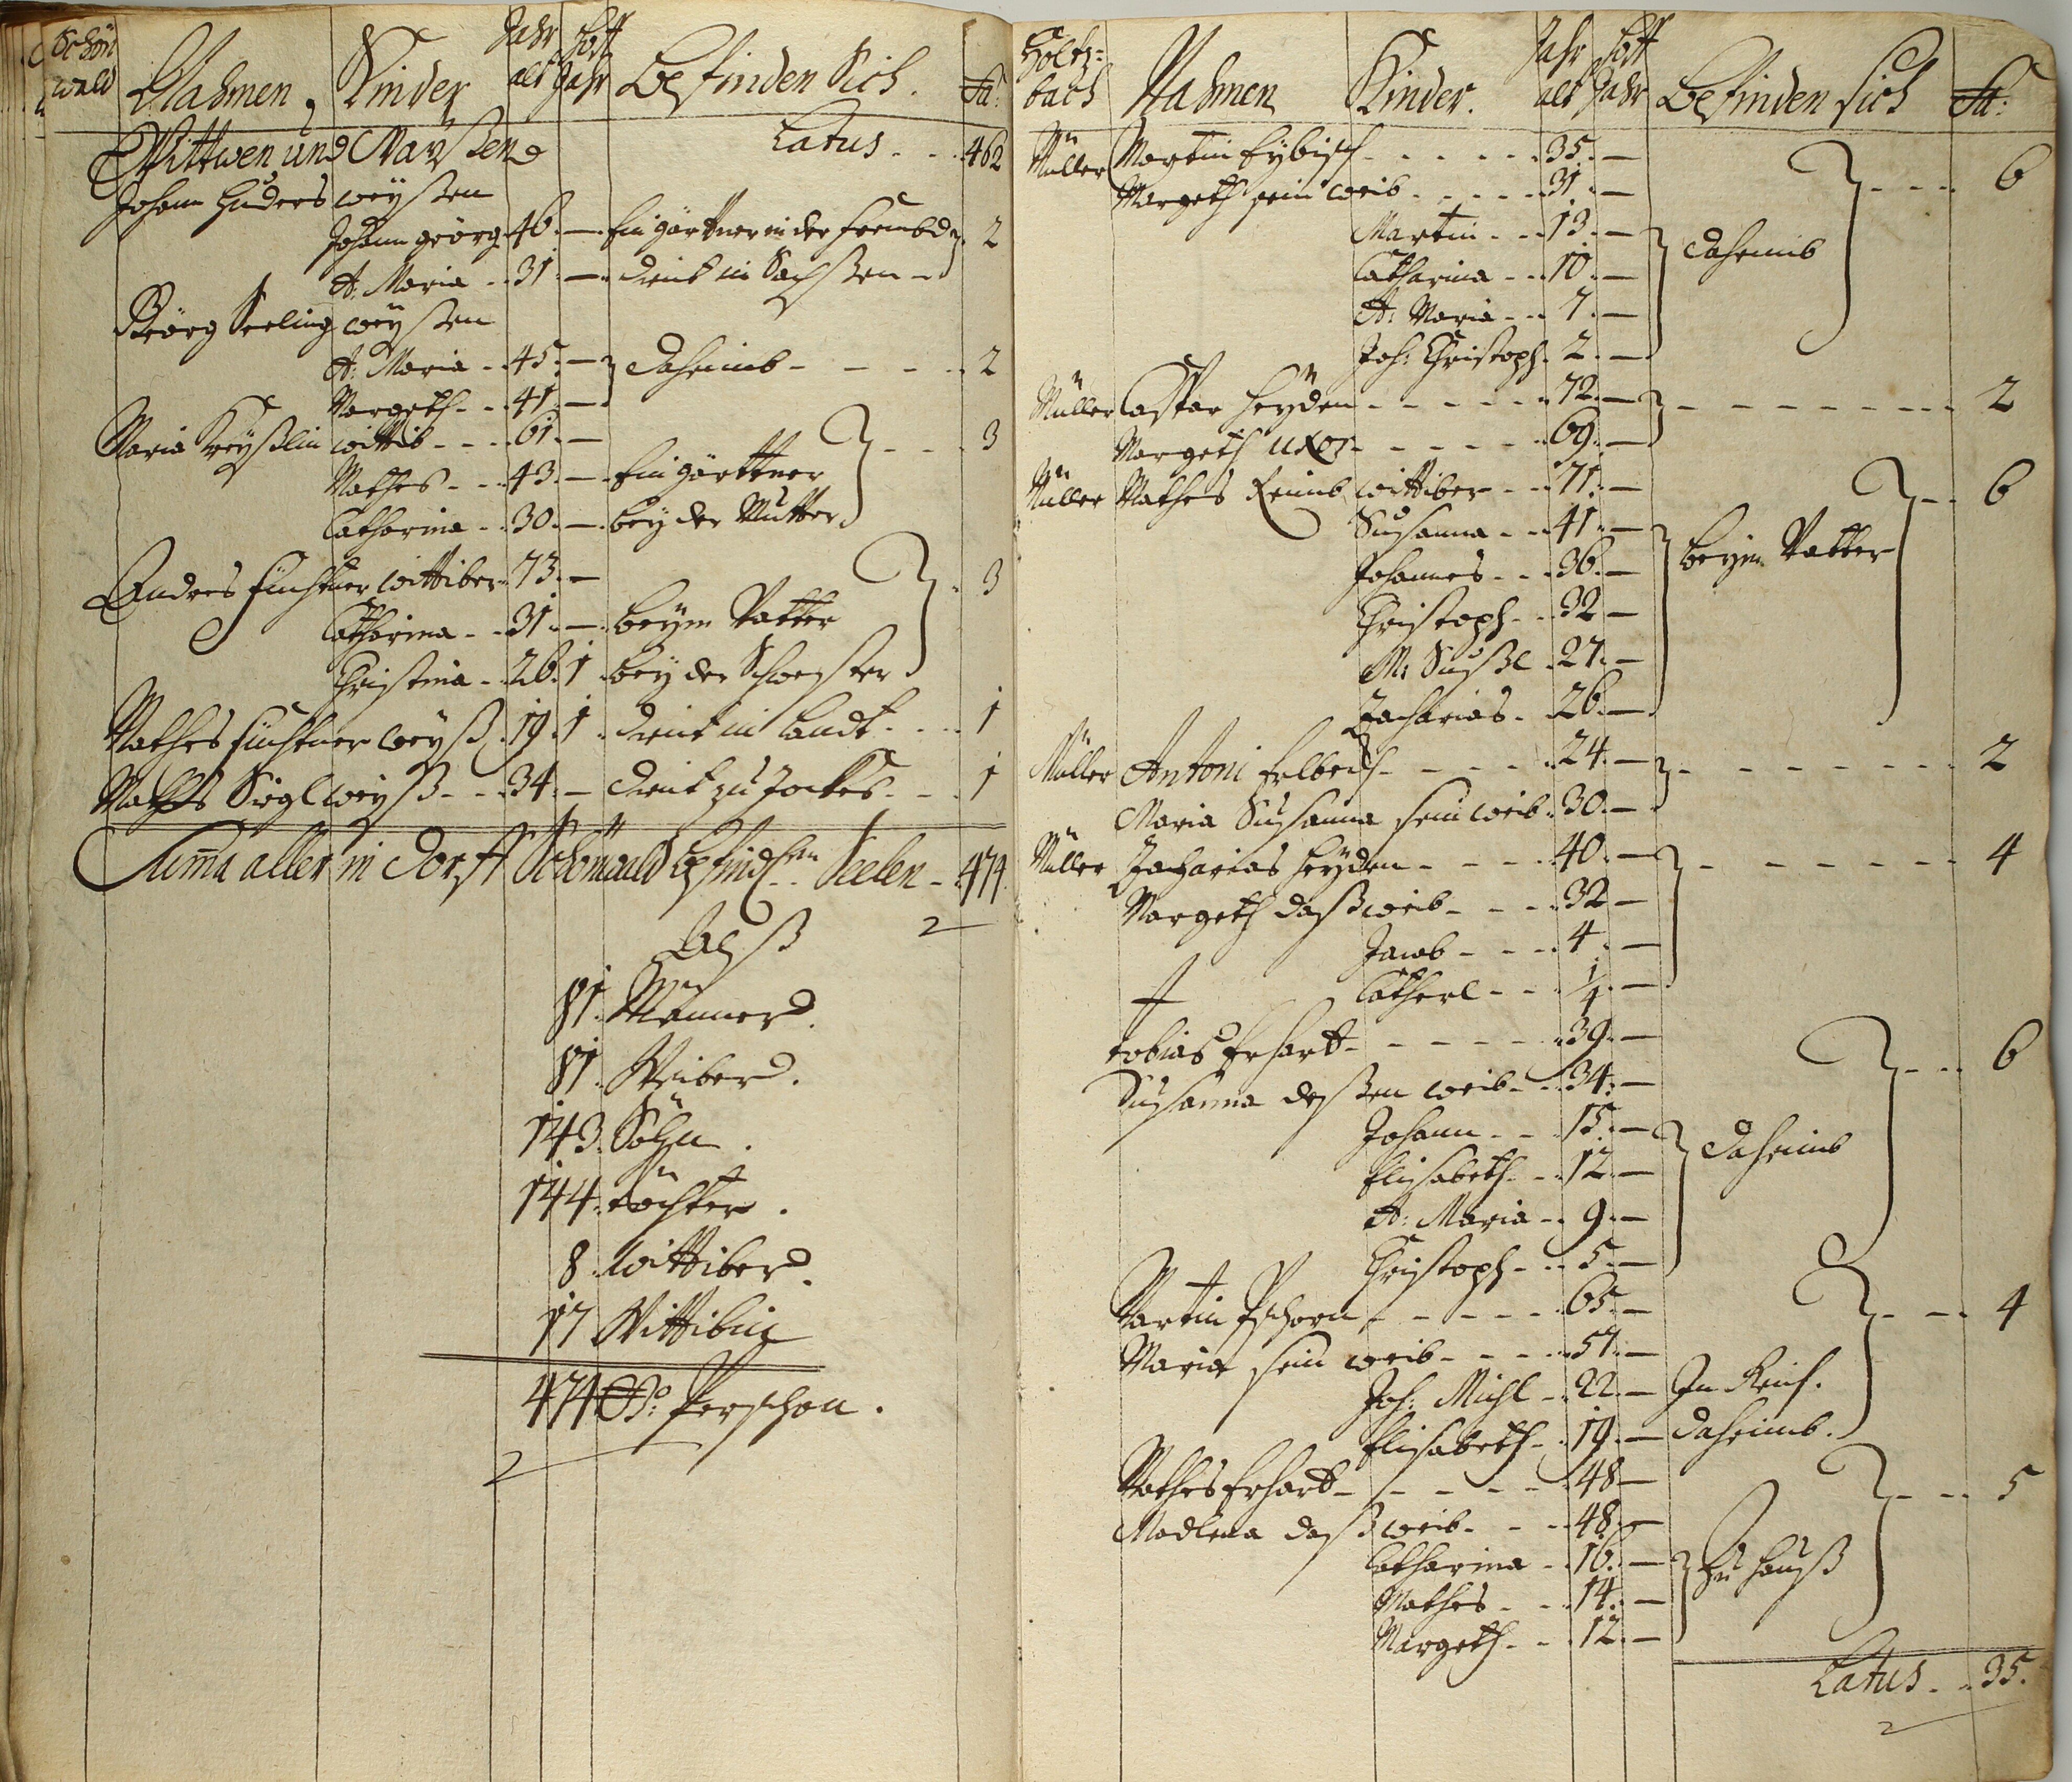 Schön
wald Nahmen Kinder Jahr alt Hoff Jahr Befinden Sich. Sa:
Wittwen und Waysen Latus - - 462
Johann weyßen
Johann georg 46. — Ein gärttner in der frembd 2
A: Maria - - 31. — dient in Sachßen
Georg Seeling weyßen
A: Maria - - 45. — daheimb - - - - 2
Margeth - - 41. —
Maria wittib - - - 61. — 3
Mathes - - 43. — Ein gärttner
Catharina - - 30. — bey der Mutter
Andres wittiber 73. — 3
Catharina - - 31. — beym Vatter
Christina - - 26. 1 bey der Schwester
Mathes weyß 19. 1 dient in Landt - - - 1
Mathes Sigl weyß - - 34. — dient zu - - 1
Suma aller in Dorff Schönwald Seelen - 474
Alß
81. Männer.
81. Weiber.
143. Söhn.
144. töchter.
8. wittiber.
17 Wittibin
474 Perschon.
Holtz=
bach Nahmen Kinder. Jahr alt Hoff Jahr Befinden sich Sa:
Müller Martin - - - - - 35. — 6
Margeth sein weib - - - - 31. —
Martin - - 13. — daheimb
Catharina - - 10. —
A: Maria - - 7. —
Joh: Christoph. 2. —
Müller Caspar Heyden - - - - - 72. — 2
Margeth uxor - - - - - 69. —
Müller Mathes wittiber - - 71. — 6
Susanna - - 41. — beym Vatter
Johannes - - 36. —
Christoph - - 32 —
M: 27. —
Zacharias - 26. —
Müller Antoni - - - - - 24. — 2
Maria Susanna sein weib 30. —
Müller Zacharias Heyden - - - - 40. — 4
Margeth daß weib - - - - 32 —
Jacob - - - 4. —
Catherl - - 1/4. —
tobias Erhart - - - - - - 39. — 6
Susanna deßen weib - - 34. —
Johann - - 15. — daheimb
Elisabeth - - 12. —
A: Maria - - 9. —
Christoph - - 5. —
Martin - - - - - 65. — 4
Maria sein weib - - - - 57. —
Joh: Michl - 22. — In Reich.
Elisabeth - 19. — daheimb.
Mathes Erhart - - - - - 48 — 5
Madlena daß weib - - - 48. —
Catharina - 16. — Zu hauß
Mathes - - 14. —
Margeth - - 12. —
Latus - - 35.